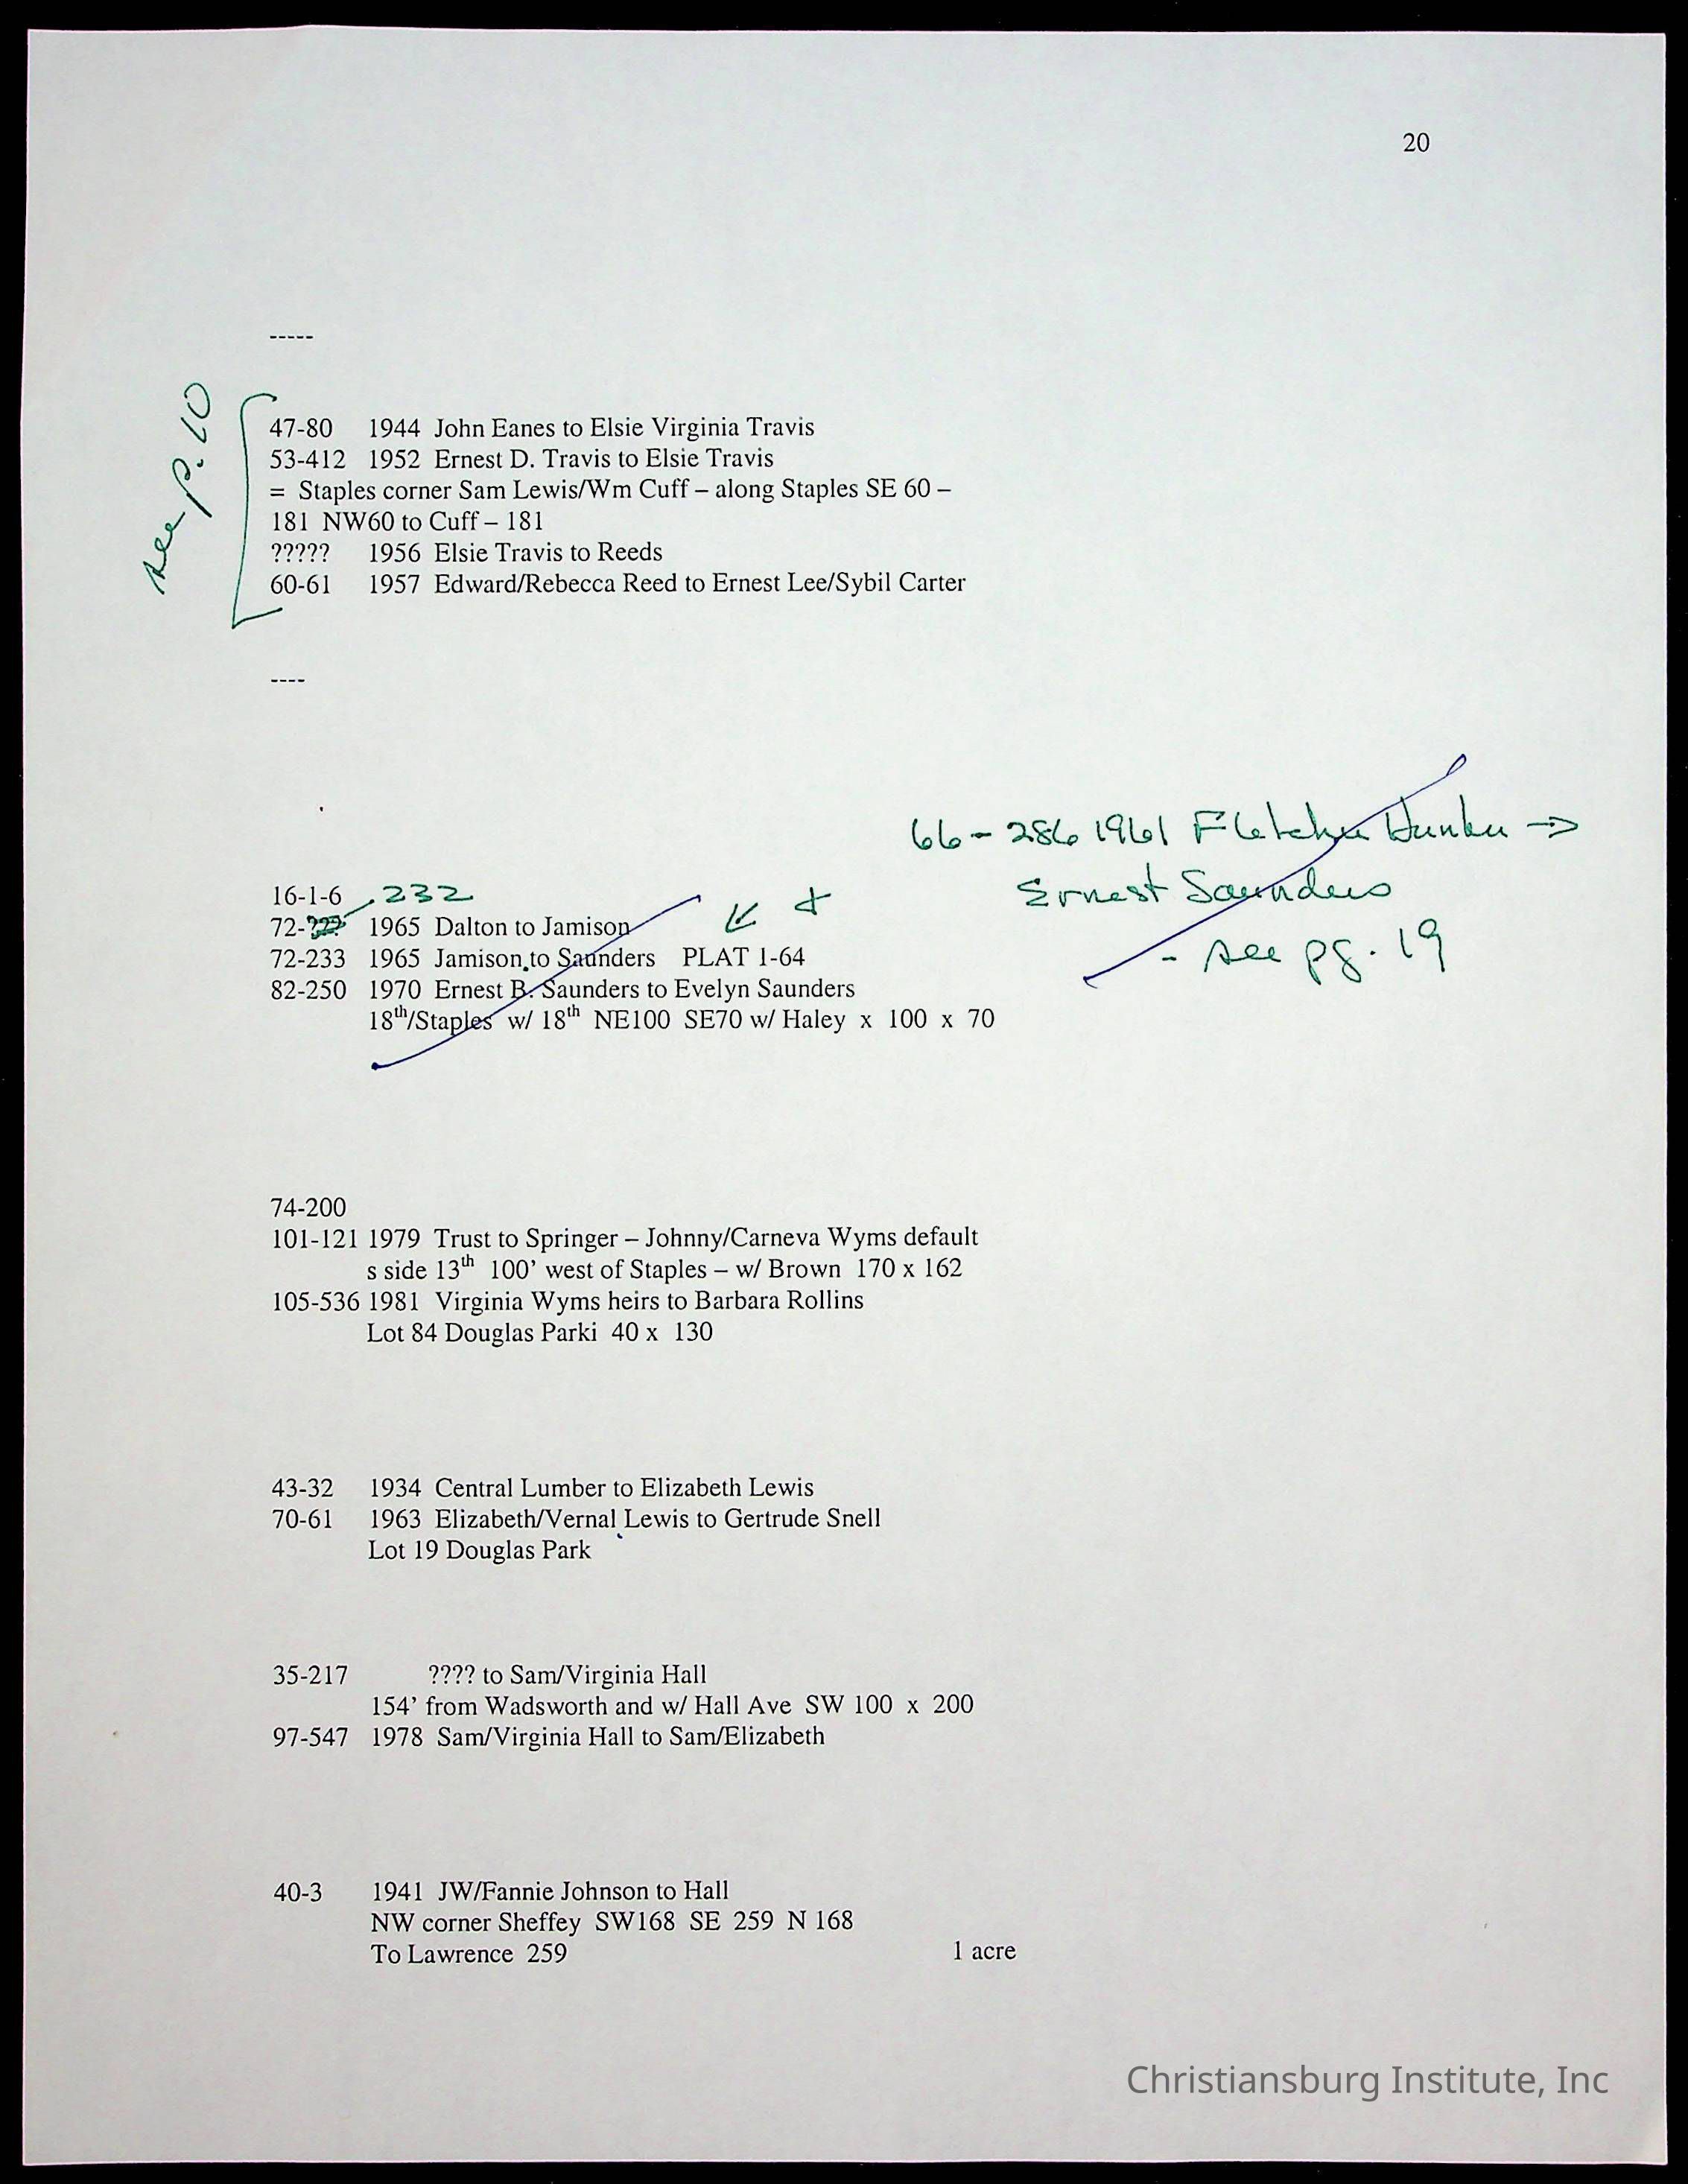 20
-----
see p. 10
47-80 1944 John Eanes to Elsie Virginia Travis
53-412 1952 Ernest D. Travis to Elsie Travis
= Staples corner Sam Lewis/Wm Cuff – along Staples SE 60 –
181 NW60 to Cuff – 181
????? 1956 Elsie Travis to Reeds
60-61 1957 Edward/Rebecca Reed to Ernest Lee/Sybil Carter
----
66-286 1961 Fletcher →
Ernest Saunders
- see pg. 19
16-1-6 232
72-??? 1965 Dalton to Jamison
72-233 1965 Jamison to Saunders PLAT 1-64
82-250 1970 Ernest B. Saunders to Evelyn Saunders
18th/Staples w/ 18th NE100 SE70 w/ Haley x 100 x 70
74-200
101-121 1979 Trust to Springer – Johnny/Carneva Wyms default
s side 13th 100’ west of Staples – w/ Brown 170 x 162
105-536 1981 Virginia Wyms heirs to Barbara Rollins
Lot 84 Douglas Parki 40 x 130
43-32 1934 Central Lumber to Elizabeth Lewis
70-61 1963 Elizabeth/Vernal Lewis to Gertrude Snell
Lot 19 Douglas Park
35-217 ???? to Sam/Virginia Hall
154’ from Wadsworth and w/ Hall Ave SW 100 x 200
97-547 1978 Sam/Virginia Hall to Sam/Elizabeth
40-3 1941 JW/Fannie Johnson to Hall
NW corner Sheffey SW168 SE 259 N 168
To Lawrence 259 1 acre
Christiansburg Institute, Inc